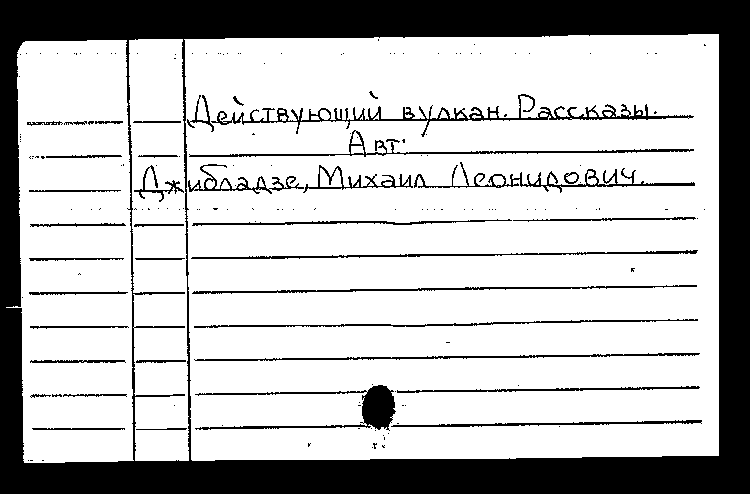 Действующий вулкан. Рассказы.
Авт:
Джибладзе, Михаил Леонидович.